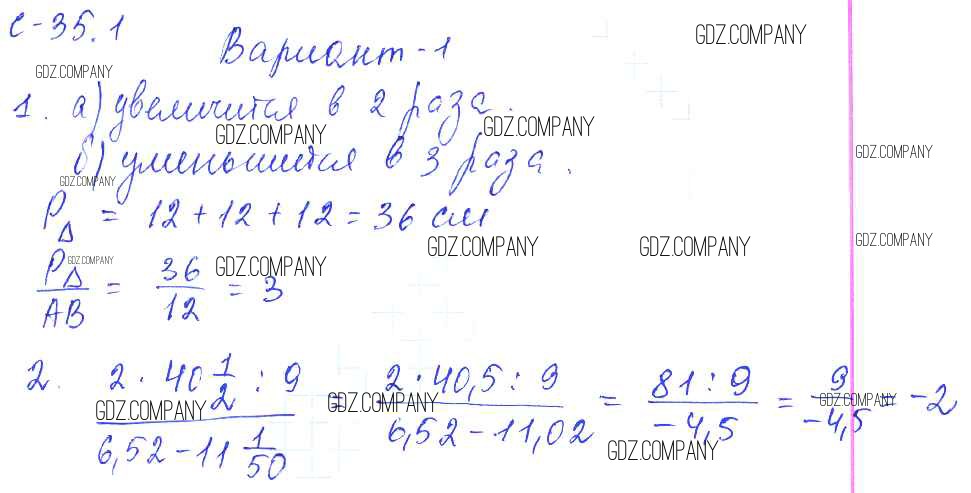 С-35.1
GDZ.COMPANY
Вариант-1
GDZ.COMPANY
1. а) увеличится в 2 раза.
GDZ.COMPANY GDZ.COMPANY
б) уменьшится в 3 раза.
GDZ.COMPANY
GDZ.COMPANY
P△ = 12+12+12=36 см
GDZ.COMPANY GDZ.COMPANY GDZ.COMPANY
P△/AB = 36/12 = 3
GDZ.COMPANY GDZ.COMPANY
2. (2 · 40 1/2 : 9)/(6,52-11 1/50) = (2·40,5:9)/(6,52-11,02) = (81:9)/(-4,5) = 9/(-4,5) = -2
GDZ.COMPANY GDZ.COMPANY GDZ.COMPANY
GDZ.COMPANY